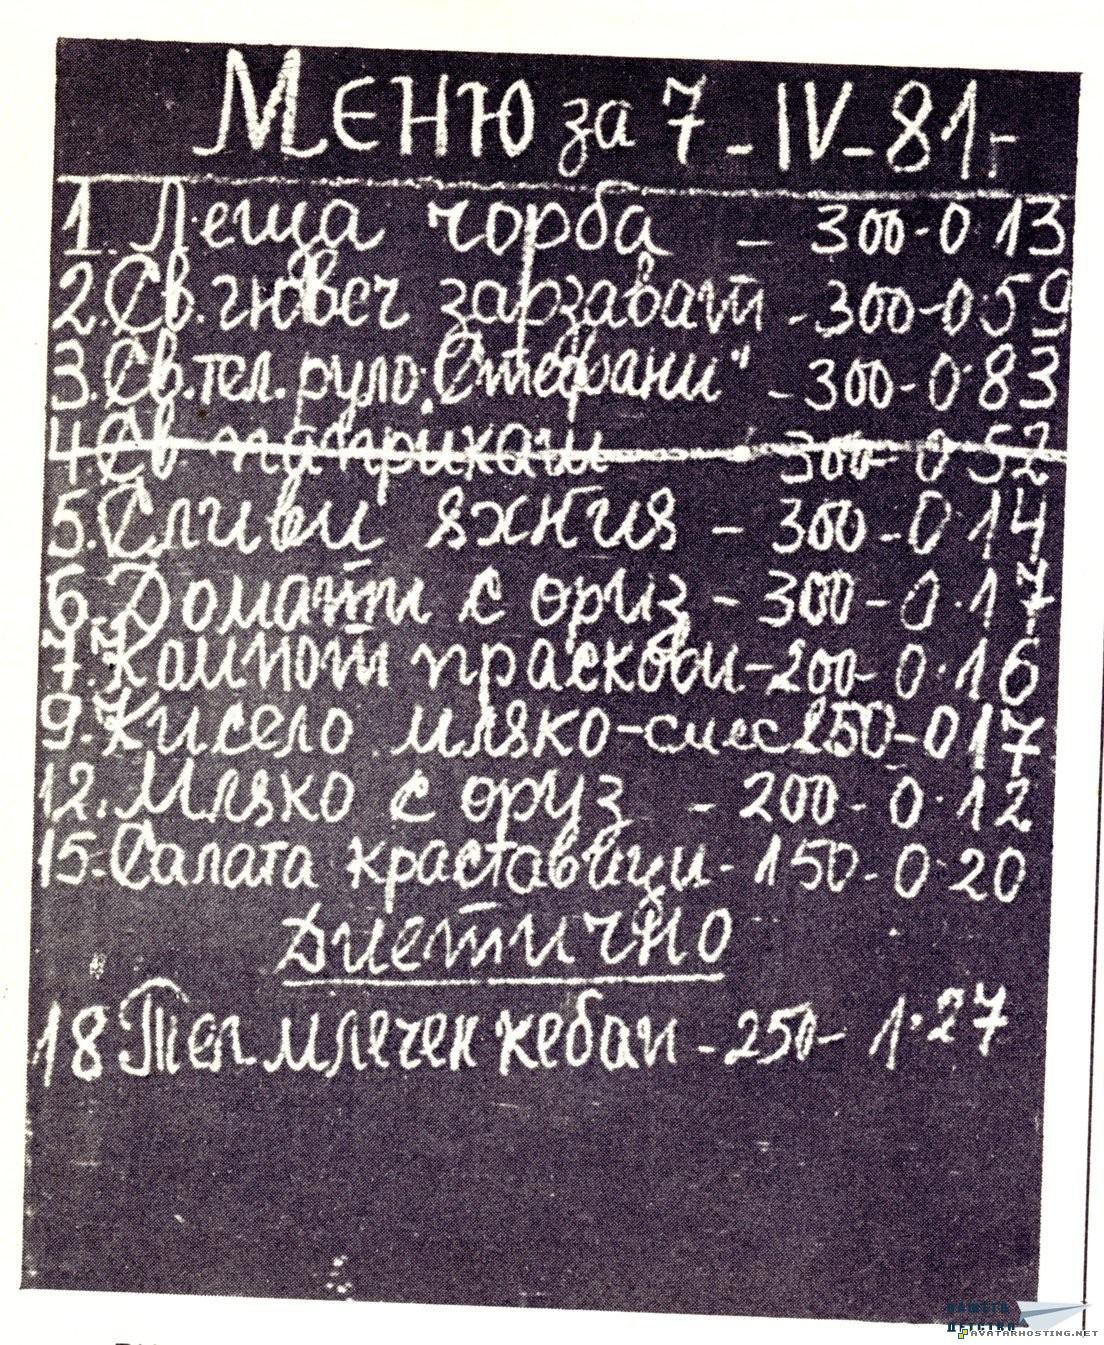 Меню за 7 - IV - 81 г
1. Леща чорба - 300 - 0.13
2. Св. гювеч зарзават - 300 - 0.59
3. Св. тел. руло „Стефани“ - 300 - 0.83
4. Св паприкаш 300 - 0 52
5. Сливи яхния - 300 - 0.14
6. Домати с ориз - 300 - 0.17
7. Компот праскови - 200 - 0.16
9. Кисело мляко - смес 250 - 0 17
12. Мляко с оруз - 200 - 0.12
15. Салата краставици - 150 - 0.20
Диетично
18 Тел млечен кебап - 250 - 1.27
НАШЕТО
ДЕТСТВО
AVATARHOSTING.NET